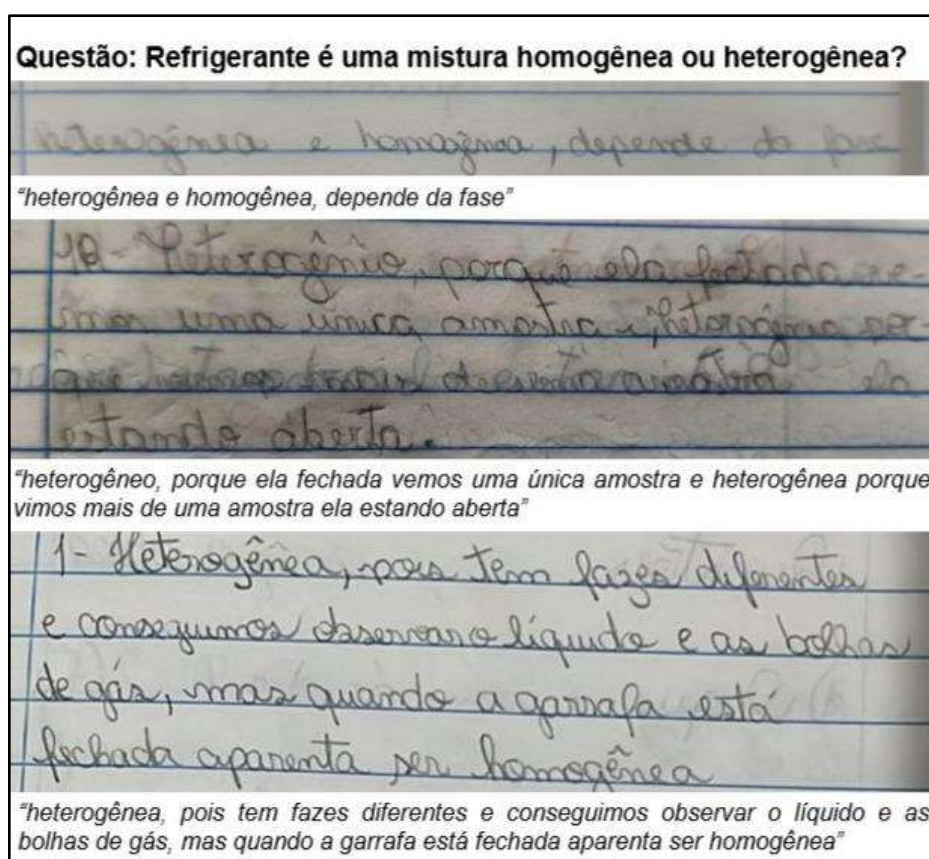 Questão: Refrigerante é uma mistura homogênea ou heterogênea?
heterogênea e homogênea, depende da fase
"heterogênea e homogênea, depende da fase"
1a- Heterogênio, porque ela fechada ve-
mos uma única amostra e, heterogênea por-
que de uma amostra ela
estando aberta.
"heterogêneo, porque ela fechada vemos uma única amostra e heterogênea porque
vimos mais de uma amostra ela estando aberta"
1- Heterogênea, pois tem fazes diferentes
e conseguimos observar o líquido e as bolhas
de gás, mas quando a garrafa está
fechada aparenta ser homogênea
"heterogênea, pois tem fazes diferentes e conseguimos observar o líquido e as
bolhas de gás, mas quando a garrafa está fechada aparenta ser homogênea"